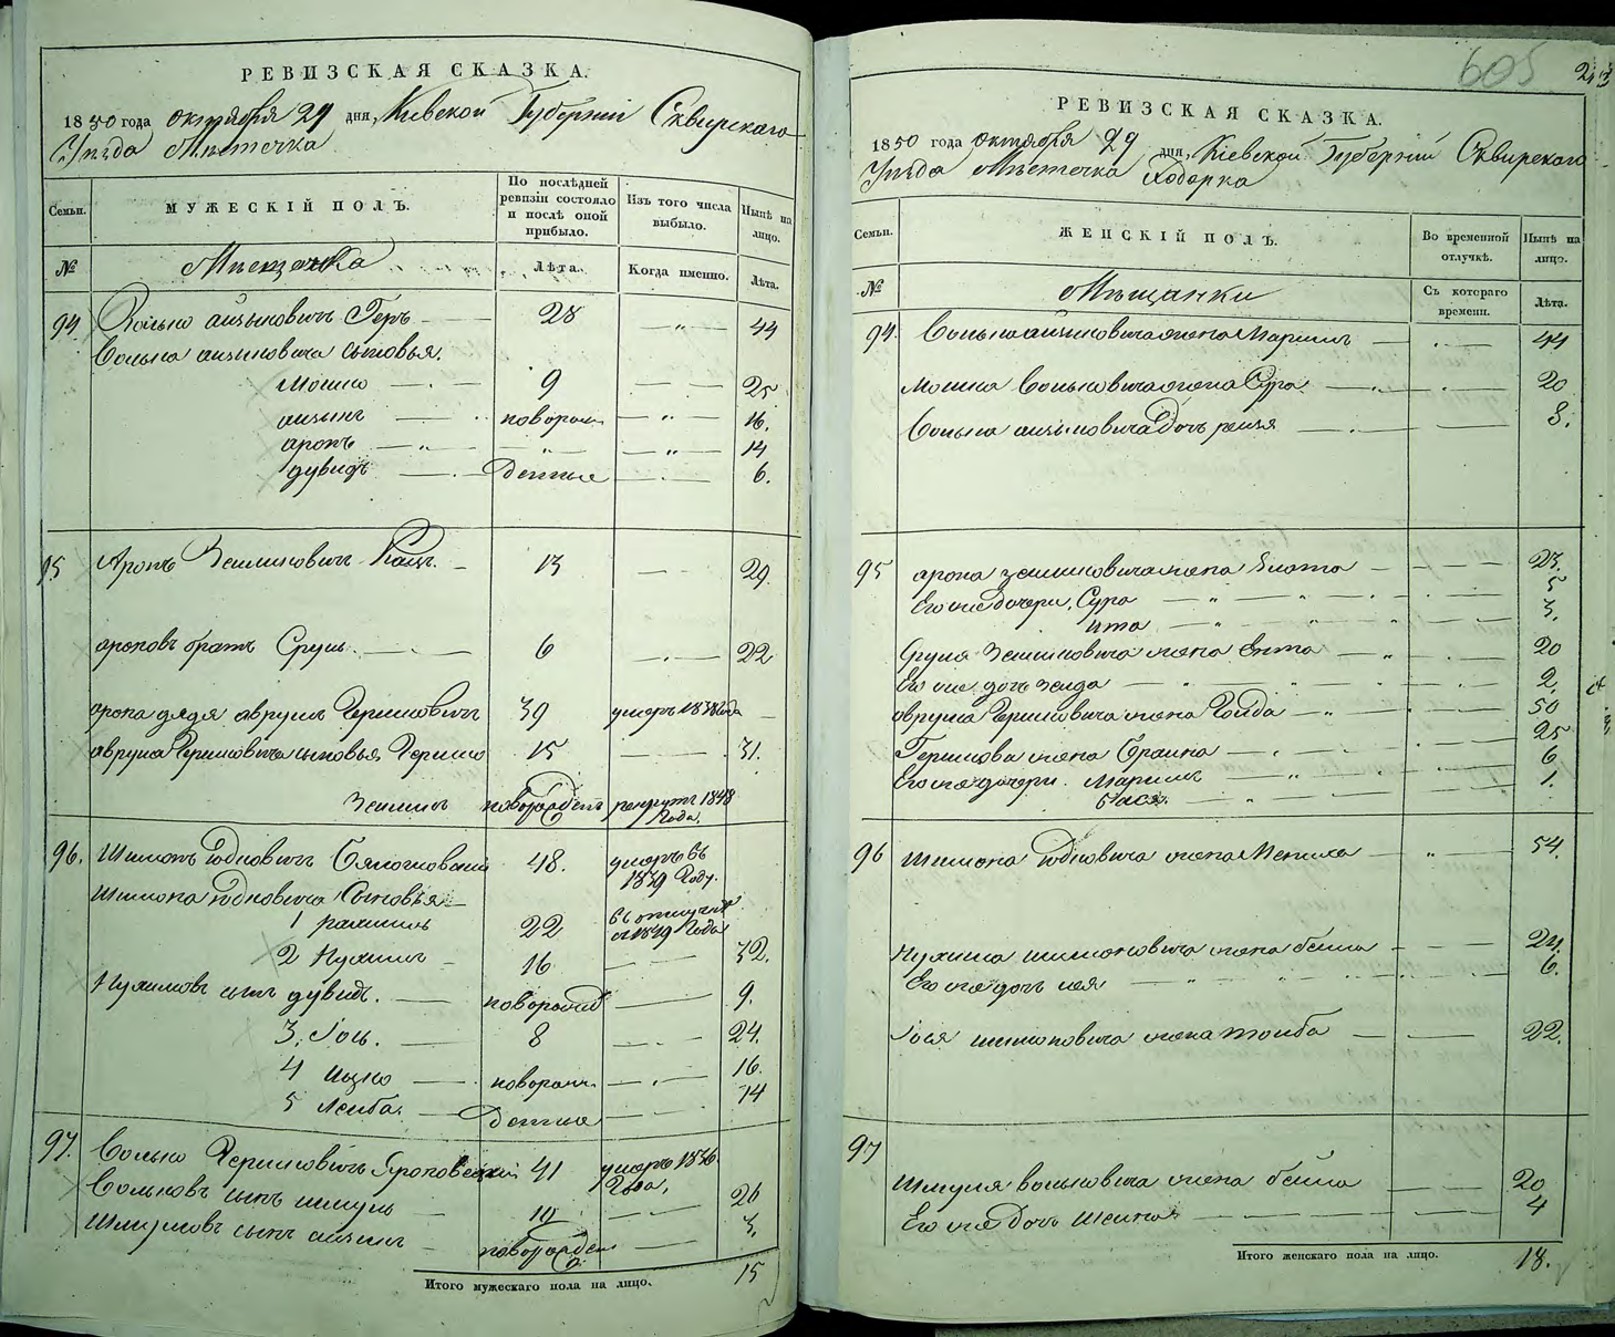 РЕВИЗСКАЯ СКАЗКА.
1850 года октября 29 дня, Кіевской Губерніи Сквирскаго
Уѣзда Мѣстечка
Семьи.
МУЖЕСКІЙ ПОЛЪ.
По послѣдней ревизіи состояло и послѣ оной прибыло.
Изъ того числа выбыло.
Нынѣ на лицо.
№
Лѣта.
Когда именно.
Лѣта.
94. Волько Айзыковичъ Геръ 28 — „ — 44
Волька Айзыковича сыновья.
Мошко 9 — — 25
Айзыкъ новорож — „ — 16.
Аронъ — „ — „ — „ — 14
Дувидъ — 6.
95 Аронъ Зейликовичъ Кацъ. 13 — — 29.
Ароновъ братъ Сруль 6 — „ — 22
Арона дядя Аврумъ Гершковичъ 39 умеръ 1838 года —
Аврума Гершковича сыновья Гершко 15 — 31.
Зейликъ новорожден рекрутъ 1848 Года.
96. Шимонъ 48. умеръ въ 1839 Году.
Шимона сыновья
1 22 въ отлучке Года
2 Нухимъ 16 — — 32.
Нухимовъ сынъ Дувидъ. новорожд — 9.
3. Іось. 8 — 24.
4 Ицко новорож — „ — 16.
5 Лейба. — 14
97. Волько Гершковичъ 41 умеръ 1836 Года.
Вольковъ сынъ Шмуль 10 — — 26
Шмулёвъ сынъ Айзикъ новорожден — 3.
Итого мужескаго пола на лицо. 15
605
РЕВИЗСКАЯ СКАЗКА.
1850 года октября 29 дня, Кіевской Губерніи Сквирскаго
Уѣзда Мѣстечка Ходорка
Семьи.
ЖЕНСКІЙ ПОЛЪ.
Во временной отлучкѣ.
Нынѣ на лицо.
№
Мѣщанки
Съ котораго времени.
Лѣта.
94. Волька Айзиковича жена Маримъ — 44
Мошка Вольковича жена Сура — 20
Волька Айзиковича дочь Рейзя — 8.
95 Арона Зейликовича жена Злата — 23.
Его же дочери, Сура — 5
Ита — 3.
Сруля Зейликовича жена Ента — 20
Его же дочь Зелда — 2.
Аврума Гершковича жена Голда — 50
Гершкова жена Браина — 25
Его же дочери. Маримъ — 6
Бася. — 1.
96 Шимона жена — 54.
Нухима Шимоновича жена Бейла — 24.
Его же дочь Лея — 6.
Іося Шимоновича жена Тойба — 22.
97
Шмуля Вольковича жена Бейла — 20
Его же дочь — 4
Итого женскаго пола на лицо. 18.